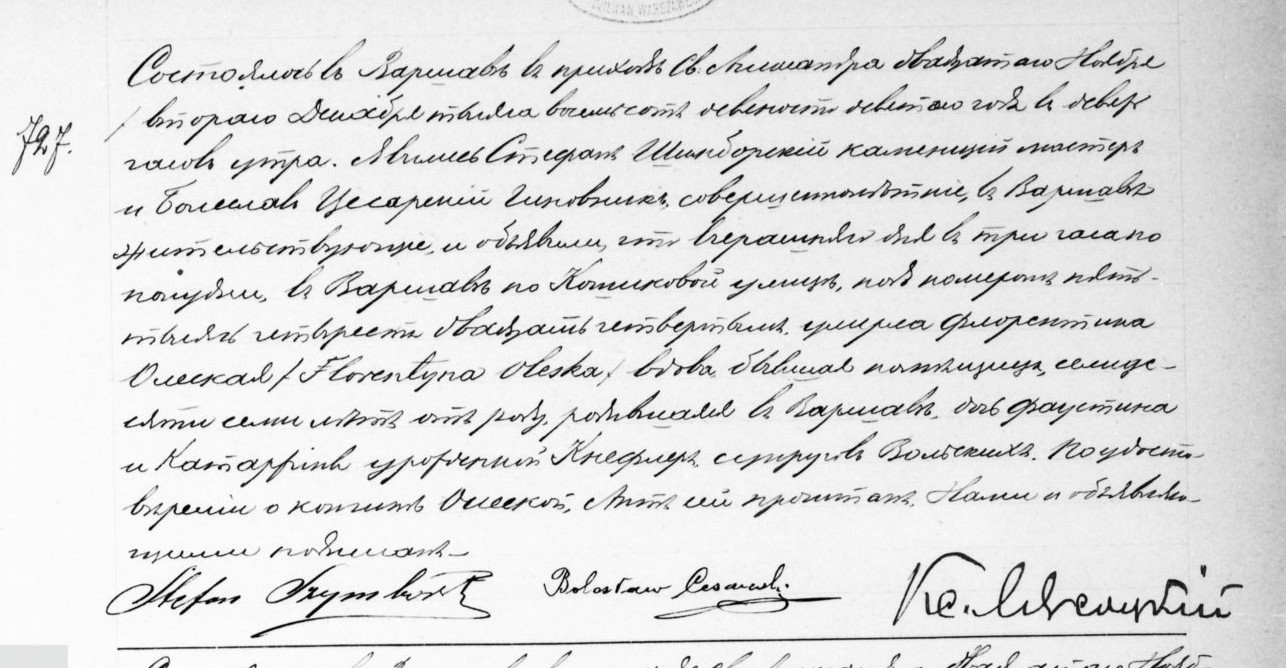 727.
Состоялось въ Варшавѣ въ приходѣ Св. Александра двадцатаго Ноября
/ втораго Декабря тысяча восемьсотъ девяносто девятаго года въ девять
часовъ утра. Явились Стефанъ Шимборскій каменщий мастеръ
и Болеславъ Цесарскій чиновникъ, совершеннолѣтніе, въ Варшавѣ
жительствующіе, и объявили, что вчерашняго дня въ три часа по
полудни, въ Варшавѣ по Кошиковой улицѣ, подъ номеромъ пять-
тысячъ четыреста двадцать четвертымъ, умерла Флорентина
Олеская / Florentyna Oleska / вдова, бывшая помѣщица, семиде-
сяти семи лѣтъ отъ роду, родившаяся въ Варшавѣ, дочь Фаустина
и Катаржины урожденной Кнефлеръ, супруговъ Вольскихъ. По удосто-
вѣреніи о кончинѣ Олеской, Актъ сей прочитанъ, Нами и объявляю-
щими подписанъ.-
Stefan Szymborski Bolesław Cesarski Кс.